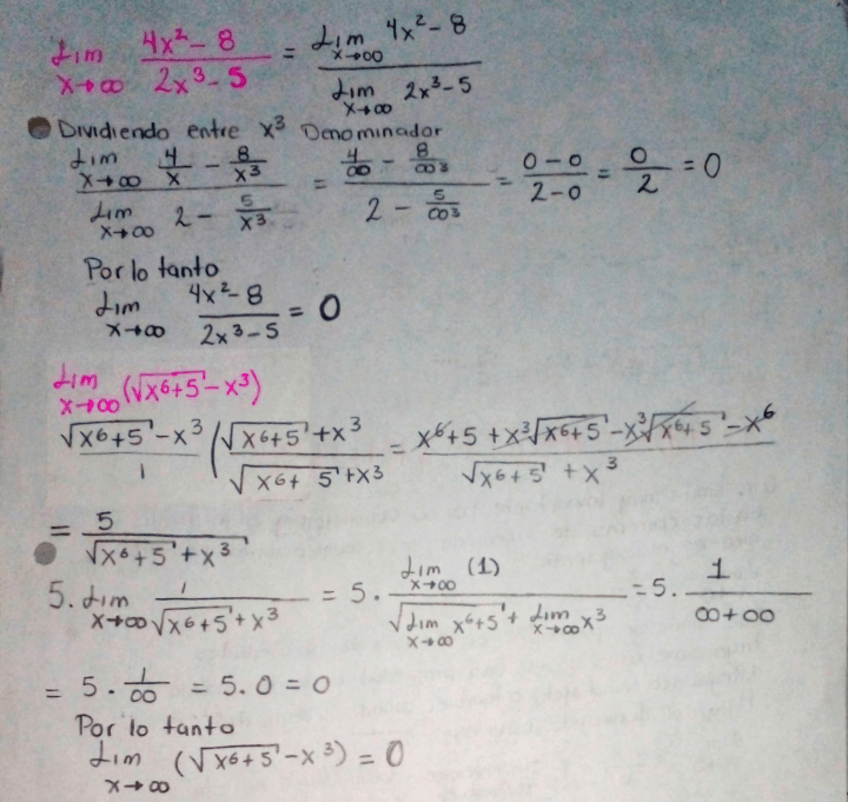 Lim x→∞ (4x² - 8)/(2x³ - 5) = (Lim x→∞ 4x² - 8)/(Lim x→∞ 2x³ - 5)
Dividiendo entre x³ Denominador
(Lim x→∞ 4/x - 8/x³)/(Lim x→∞ 2 - 5/x³) = (4/∞ - 8/∞³)/(2 - 5/∞³) = (0 - 0)/(2 - 0) = 0/2 = 0
Por lo tanto
Lim x→∞ (4x² - 8)/(2x³ - 5) = 0
Lim x→∞ (√(x⁶+5) - x³)
(√(x⁶+5) - x³)/1 ((√(x⁶+5) + x³)/(√(x⁶+5) + x³) = (x⁶ + 5 + x³√(x⁶+5) - x³√(x⁶+5) - x⁶)/(√(x⁶+5) + x³)
= 5/(√(x⁶+5) + x³)
5. Lim x→∞ 1/(√(x⁶+5) + x³) = 5 · (Lim x→∞ (1))/(√(Lim x→∞ x⁶+5) + Lim x→∞ x³) = 5 · 1/(∞+∞)
= 5 · 1/∞ = 5 . 0 = 0
Por lo tanto
Lim x→∞ (√(x⁶+5) - x³) = 0